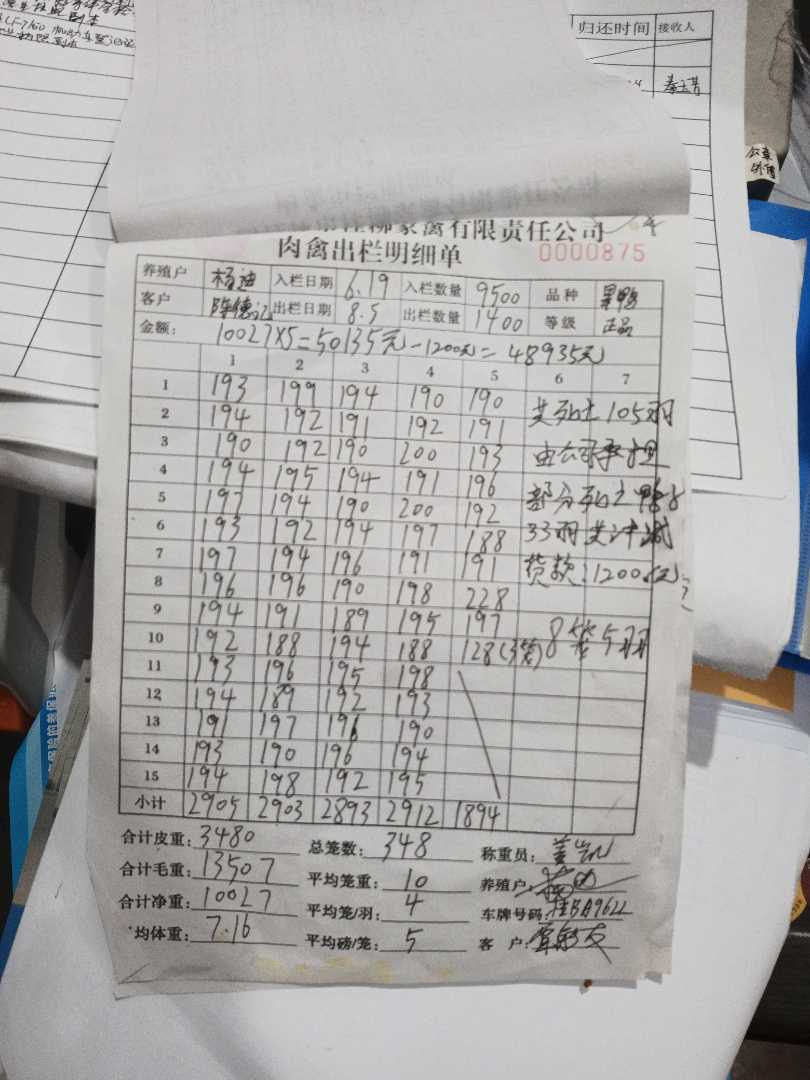 归还时间 接收人
柳家禽有限责任公司
肉禽出栏明细单 0000875
养殖户 杨迪 入栏日期 6.19 入栏数量 9500 品种 
客户 陈德记 出栏日期 8.5 出栏数量 1400 等级 正品
金额: 10027×5=50135元-1200元=48935元
1 2 3 4 5 6 7
1 193 199 194 190 190 共死亡105羽
2 194 192 191 192 191
3 190 192 190 200 193 由公司承担
4 194 195 194 191 196
5 197 194 190 200 192 部分死亡鸭
6 193 192 194 197 188 33羽共计减
7 197 194 196 191 191 货款:1200元
8 196 196 190 198 228
9 194 191 189 195 197
10 192 188 194 188 128(3笼) 8笼5羽
11 193 196 195 198
12 194 189 192 193
13 191 197 196 190
14 193 190 196 194
15 194 198 192 195
小计 2905 2903 2893 2912 1894
合计皮重: 3480 总笼数: 348 称重员:
合计毛重: 13507 平均笼重: 10 养殖户:
合计净重: 10027 平均笼/羽: 4 车牌号码: 桂BA9622
均体重: 7.16 平均磅/笼: 5 客 户: